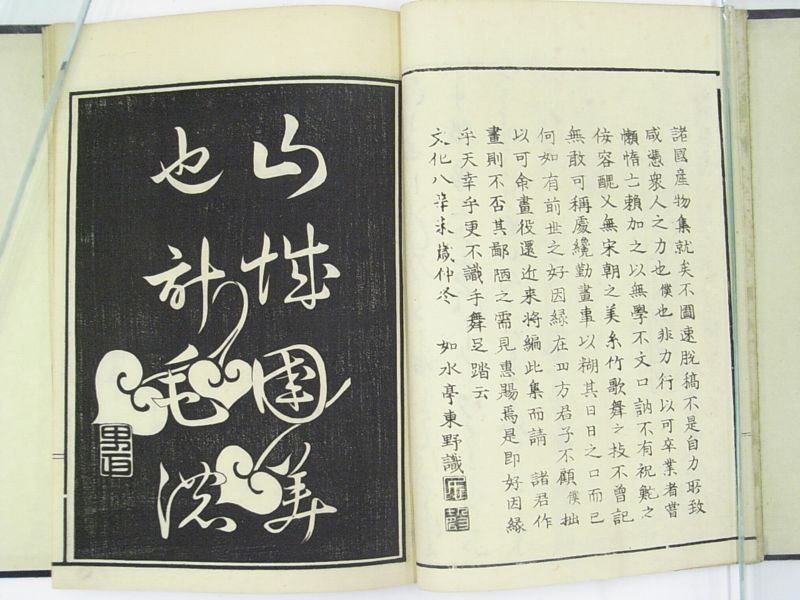 諸國産物集就矣不圖速脱稿不是自力所致
咸憑衆人之力也僕也非力行以可卒業者嘗
懶惰亡頼加之以無學不文口訥不有祝鮀之
侫容醜又無宋朝之美糸竹歌舞之技不曾記
無敢可稱處纔勤畫事以糊其日日之口而已
何如有前世之好因縁在四方君子不顧僕拙
以可命畫役還近来将編此集而請 諸君作
畫則不否其鄙陋之需見惠賜焉是即好因縁
乎天幸乎更不識手舞足踏云
文化八辛未歳仲冬 如水亭東野識
山城國美
也計毛濃